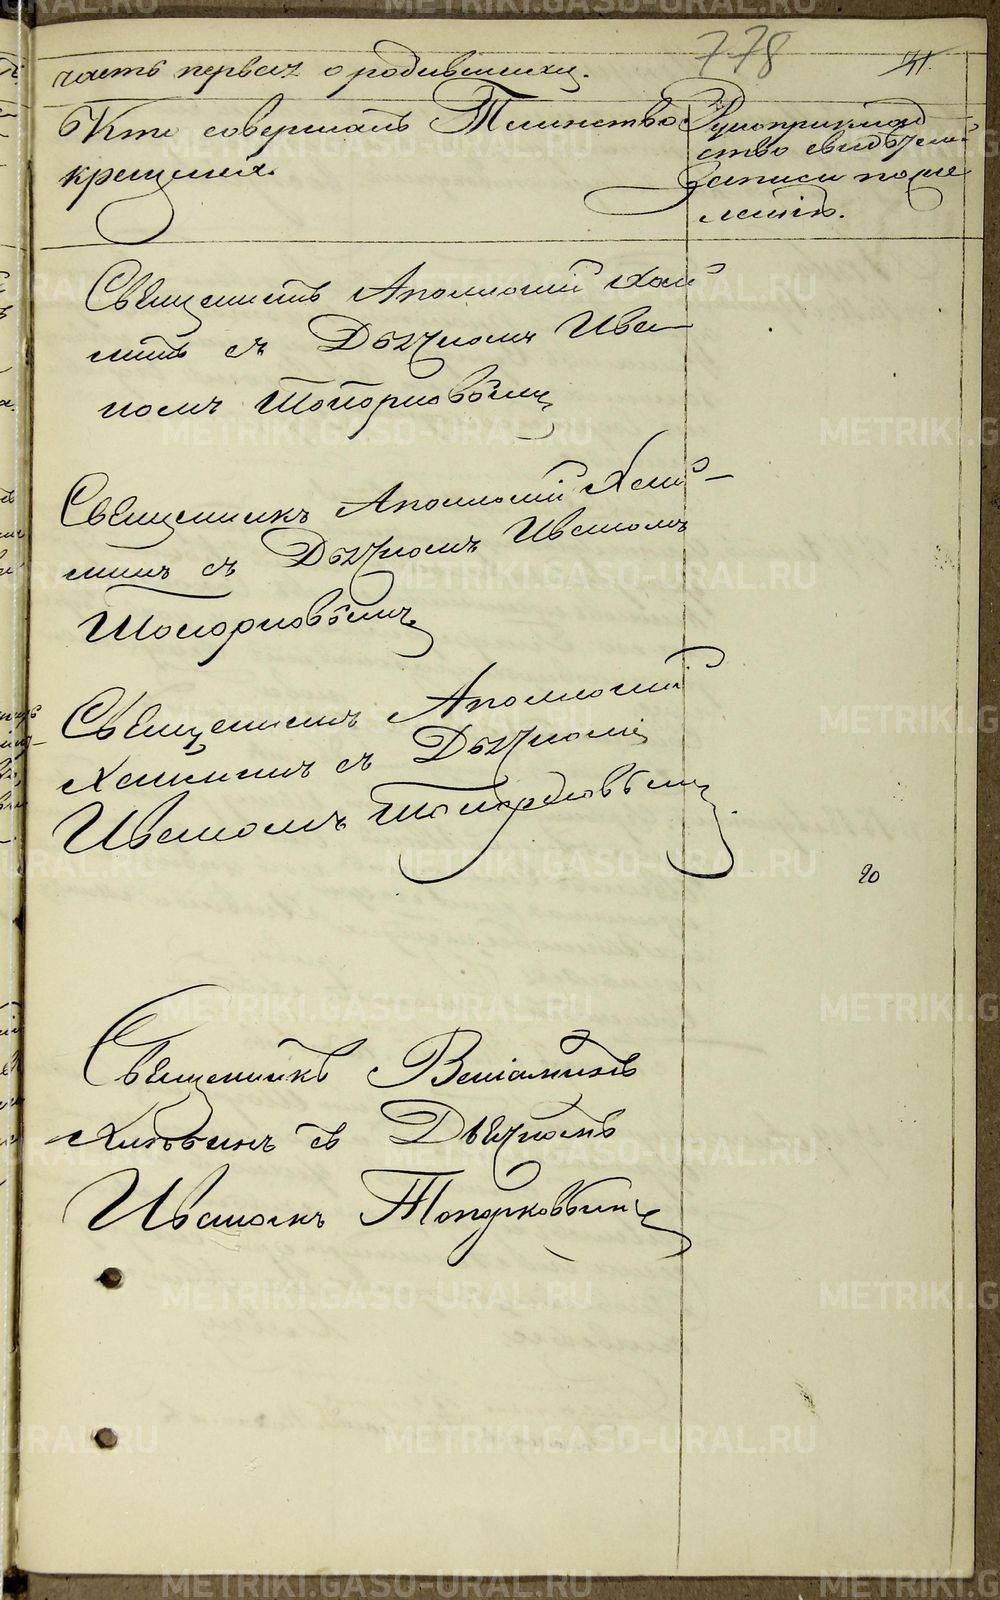 778
часть первая о родившихся.
Кто совершалъ Таинство
крещенія.
Рукоприклад
ство свидѣтелей
записи по же
ланію.
Священникъ Аполлоній
съ Дьячкомъ Ива
номъ Топорковымъ
Священникъ Аполлоній
съ Дьячкомъ Иваномъ
Топорковымъ
Священникъ Аполлоній
съ Дьячкомъ
Иваномъ Топорковымъ
20
Священникъ Веніаминъ
съ Дьячкомъ
Иваномъ Топорковымъ
METRIKI.GASO-URAL.RU